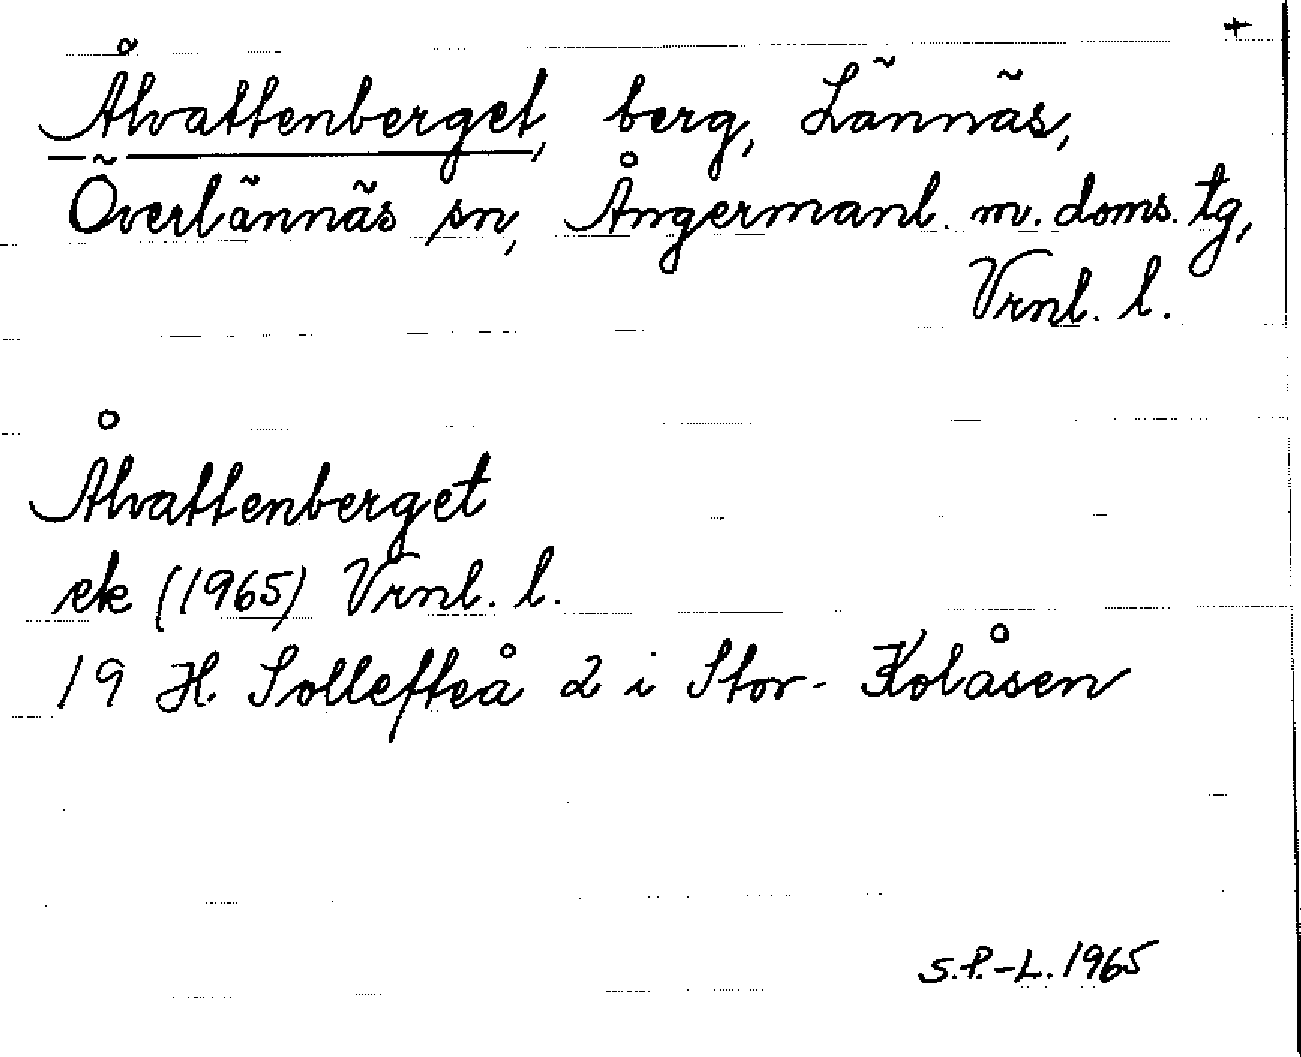 +
Ålvattenberget, berg, Lännäs,
Överlännäs sn, Ångermanl. m. doms. tg,
Vrnl. l.
Ålvattenberget
ek (1965) Vrnl. l.
19 H. Sollefteå 2 i Stor-Kolåsen
S.P.-L. 1965